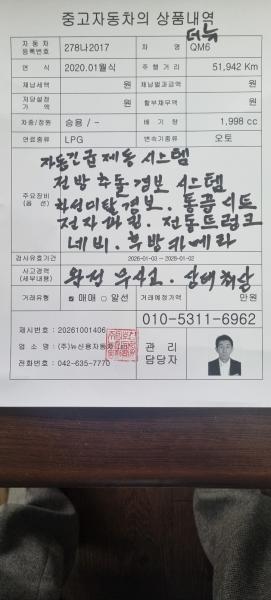 중고자동차의 상품내역
자 동 차 등록번호 278나2017 차 명 더뉴 QM6
연 식 2020.01월식 주 행 거 리 51,942 Km
체납세액 원 체납벌과금액 원
저당설정가 액 원 할부채무액 원
차종/정원 승용 / - 배 기 량 1,998 cc
연료종류 LPG 변속기종류 오토
자동긴급 제동 시스템
전방 추돌 경보 시스템
주요장비 (옵 션) 차선이탈 경보. 통풍 시트
전자파킹. 전동트렁크
네비. 후방카메라
검사유효기간 2026-01-03 ~ 2028-01-02
사고경력 (세부내용) 완전 무사고. 상태 최상
거래유형 매매 ○ 알선 거래예정가액 만원
010-5311-6962
제시번호 : 20261001406
업 소 명 : (주)뉴신용자동차
관 리
담당자
전화번호 : 042-635-7770